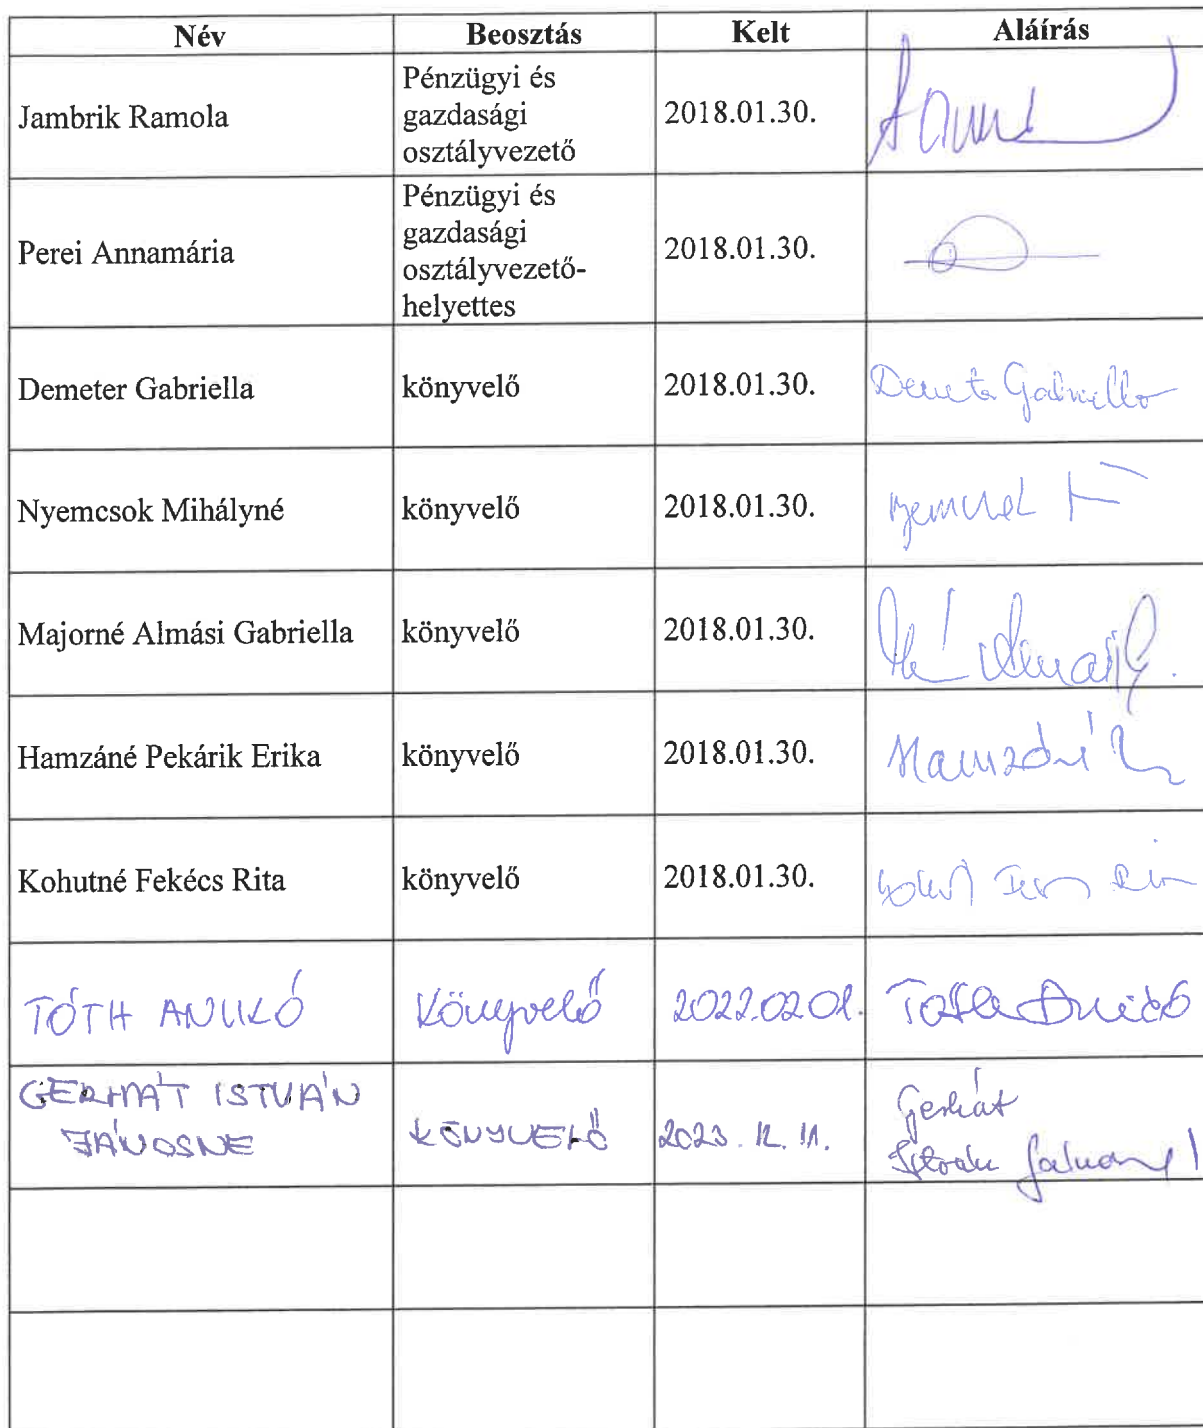 Név Beosztás Kelt Aláírás
Jambrik Ramola Pénzügyi és gazdasági osztályvezető 2018.01.30.
Perei Annamária Pénzügyi és gazdasági osztályvezető-helyettes 2018.01.30.
Demeter Gabriella könyvelő 2018.01.30. Demeter Gabriella
Nyemcsok Mihályné könyvelő 2018.01.30.
Majorné Almási Gabriella könyvelő 2018.01.30.
Hamzáné Pekárik Erika könyvelő 2018.01.30. Hamzáné
Kohutné Fekécs Rita könyvelő 2018.01.30.
TÓTH ANIKÓ Könyvelő 2022.02.01. Tóth Anikó
GERHÁT ISTVÁN JÁNOSNE KÖNYVELŐ 2023. 12. 11. Gerhát István